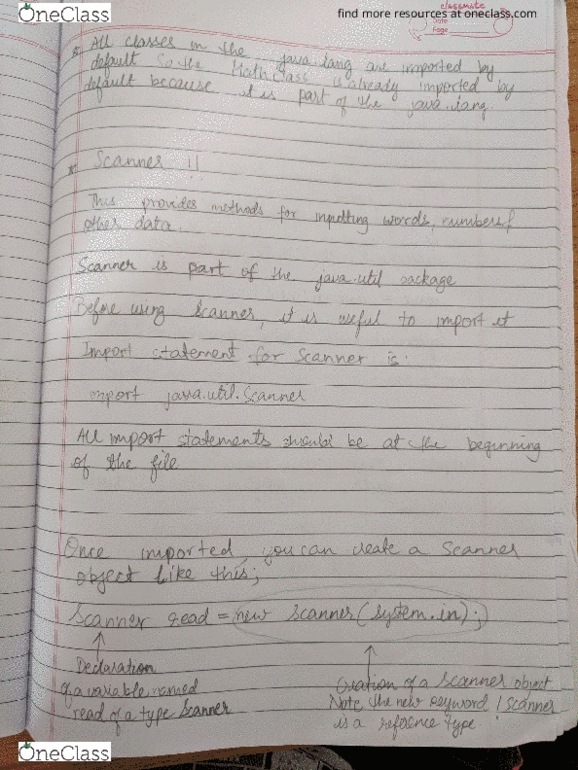 OneClass
find more resources at oneclass.com
classmate
Date
Page
* All classes in the java.lang are imported by
default so the Math class is already imported by
default because it is part of the java.lang
* Scanner !!
This provides methods for inputting words, numbers &
other data.
Scanner is part of the java.util package
Before using Scanner, it is useful to import it
Import statement for Scanner is:
import java.util.Scanner
All import statements should be at the beginning
of the file
Once imported, you can create a Scanner
object like this;
Scanner read = new Scanner(system.in);
Declaration
of a variable named
read of a type Scanner
Creation of a Scanner object
Note the new keyword / Scanner
is a reference type
OneClass